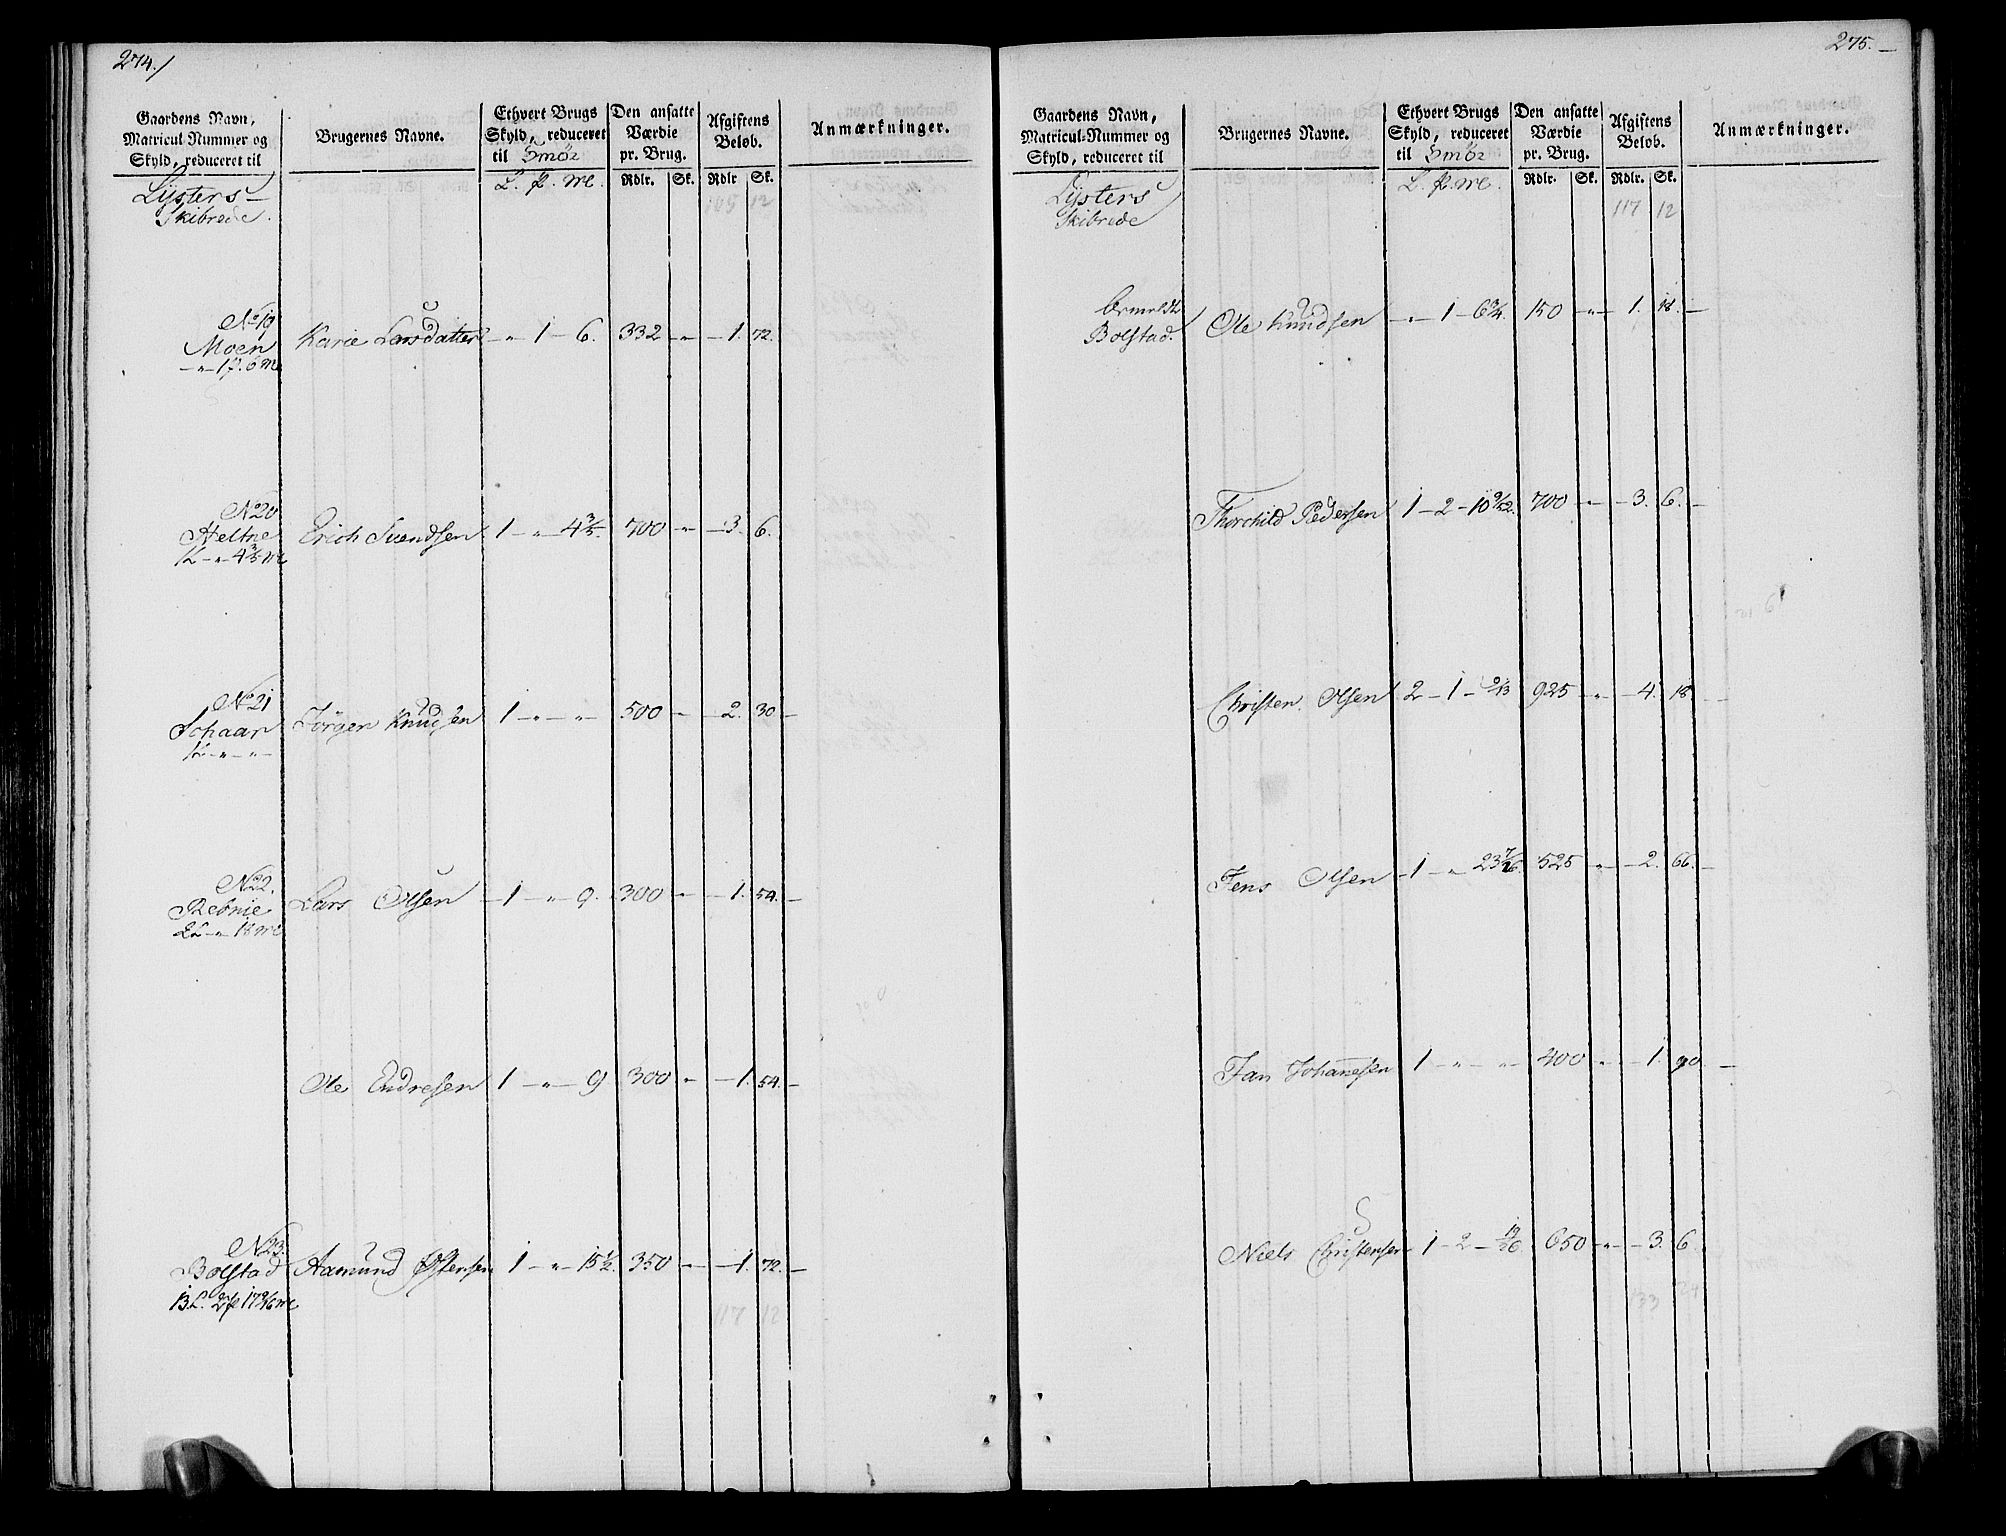 274./
Gaardens Navn,
Matricul-Nummer og
Skyld, reduceret til
Brugernes Navne.
Ethvert Brugs
Skyld, reduceret
til Smör
Den ansatte
Værdie
pr. Brug.
Afgiftens
Beløb.
Anmærkninger.
Rdlr. Sk. Rdlr Sk.
Lysters
Skibrede.
105 12
No 19
Moen
Karie Larsdatter - " 1 - 6. 332 - " - 1. 72.
- " - 1 p. 6 m
No 20
Heltne
Erich Svendsen 1 - " - 4 3/5. 700 - " - 3. 6.
No 21
Schaar
Jörgen Knudsen 1 - " - " - 500 - - 2. 30 -
No 22.
Rebnie
Lars Olsen - 1 - " - 9. 300 - " - 1. 54. -
Ole Endresen 1 - " - 9 300 - " - 1. 54. -
No 23.
Bolstad
Aamund Östensen 1 - " - 15 1/2. 350 - - 1. 72. -
117 12
275. -
Gaardens Navn,
Matricul-Nummer og
Skyld, reduceret til
Brugernes Navne.
Ethvert Brugs
Skyld, reduceret
til Smör
Den ansatte
Værdie
pr. Brug.
Afgiftens
Beløb.
Anmærkninger.
Rdlr. Sk. Rdlr. Sk.
Lysters
Skibrede
117 12
Bolstad.
Ole Knudsen - " - 1 - 6 3/4. 150 - " - 1. 18. -
Thorchild Pedersen 1 - 2 - 10 700 - " - 3. 6. -
Christen Olsen 2 - 1 - 2/13 925 - " - 4. 18 -
Jens Olsen - 1 - " 23 7/26. 525 - " - 2. 66. -
Jan Johannesen 1 - " - " - 400 - " - 1. 90. -
Niels Christensen - 1 - 2 - 19/26. 650 - " - 3. 6. -
133 24